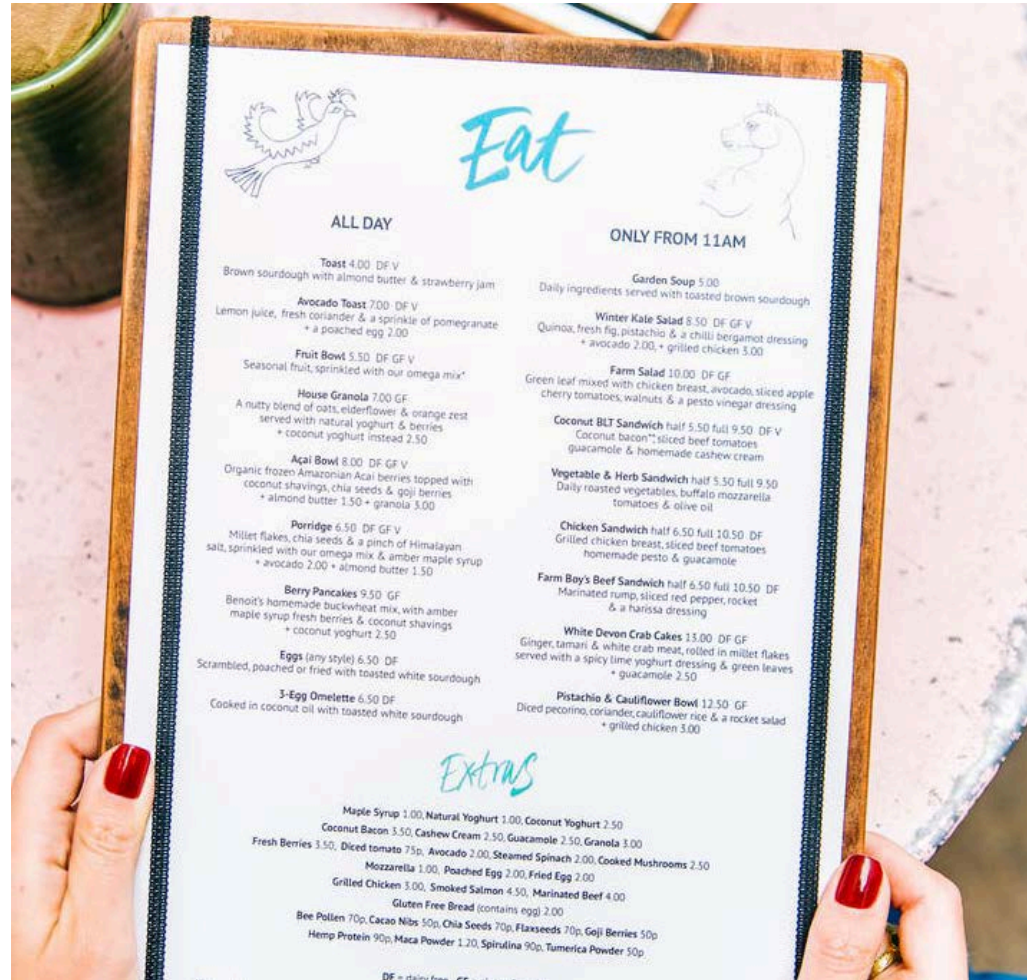 Eat
ALL DAY
Toast 4.00 DF V
Brown sourdough with almond butter & strawberry jam
Avocado Toast 7.00 DF V
Lemon juice, fresh coriander & a sprinkle of pomegranate
+ a poached egg 2.00
Fruit Bowl 5.50 DF GF V
Seasonal fruit, sprinkled with our omega mix*
House Granola 7.00 GF
A nutty blend of oats, elderflower & orange zest
served with natural yoghurt & berries
+ coconut yoghurt instead 2.50
Açai Bowl 8.00 DF GF V
Organic frozen Amazonian Acai berries topped with
coconut shavings, chia seeds & goji berries
+ almond butter 1.50 + granola 3.00
Porridge 6.50 DF GF V
Millet flakes, chia seeds & a pinch of Himalayan
salt, sprinkled with our omega mix & amber maple syrup
+ avocado 2.00 + almond butter 1.50
Berry Pancakes 9.50 GF
Benoit's homemade buckwheat mix, with amber
maple syrup fresh berries & coconut shavings
+ coconut yoghurt 2.50
Eggs (any style) 6.50 DF
Scrambled, poached or fried with toasted white sourdough
3-Egg Omelette 6.50 DF
Cooked in coconut oil with toasted white sourdough
ONLY FROM 11AM
Garden Soup 5.00
Daily ingredients served with toasted brown sourdough
Winter Kale Salad 8.50 DF GF V
Quinoa, fresh fig, pistachio & a chilli bergamot dressing
+ avocado 2.00, + grilled chicken 3.00
Farm Salad 10.00 DF GF
Green leaf mixed with chicken breast, avocado, sliced apple
cherry tomatoes, walnuts & a pesto vinegar dressing
Coconut BLT Sandwich half 5.50 full 9.50 DF V
Coconut bacon**, sliced beef tomatoes
guacamole & homemade cashew cream
Vegetable & Herb Sandwich half 5.50 full 9.50
Daily roasted vegetables, buffalo mozzarella
tomatoes & olive oil
Chicken Sandwich half 6.50 full 10.50 DF
Grilled chicken breast, sliced beef tomatoes
homemade pesto & guacamole
Farm Boy's Beef Sandwich half 6.50 full 10.50 DF
Marinated rump, sliced red pepper, rocket
& a harissa dressing
White Devon Crab Cakes 13.00 DF GF
Ginger, tamari & white crab meat, rolled in millet flakes
served with a spicy lime yoghurt dressing & green leaves
+ guacamole 2.50
Pistachio & Cauliflower Bowl 12.50 GF
Diced pecorino, coriander, cauliflower rice & a rocket salad
+ grilled chicken 3.00
Extras
Maple Syrup 1.00, Natural Yoghurt 1.00, Coconut Yoghurt 2.50
Coconut Bacon 3.50, Cashew Cream 2.50, Guacamole 2.50, Granola 3.00
Fresh Berries 3.50, Diced tomato 75p, Avocado 2.00, Steamed Spinach 2.00, Cooked Mushrooms 2.50
Mozzarella 1.00, Poached Egg 2.00, Fried Egg 2.00
Grilled Chicken 3.00, Smoked Salmon 4.50, Marinated Beef 4.00
Gluten Free Bread (contains egg) 2.00
Bee Pollen 70p, Cacao Nibs 50p, Chia Seeds 70p, Flaxseeds 70p, Goji Berries 50p
Hemp Protein 90p, Maca Powder 1.20, Spirulina 90p, Tumerica Powder 50p
DF = dairy free